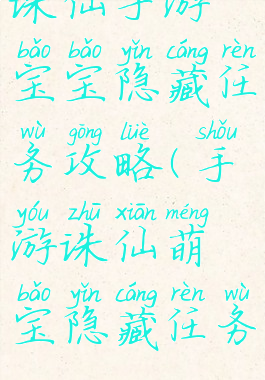 诛仙手游
bǎo bǎo yǐn cáng rèn
宝宝隐藏任
wù gōng lüè shǒu
务攻略(手
yóu zhū xiān méng
游诛仙萌
bǎo yǐn cáng rèn wù
宝隐藏任务